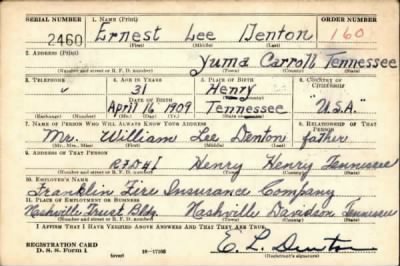 SERIAL NUMBER 1. NAME (Print) ORDER NUMBER
2460 Ernest Lee Denton 160
(First) (Middle) (Last)
2. ADDRESS (Print)
Yuma Carroll Tennessee
(Number and street or R. F. D. number) (Town) (County) (State)
3. TELEPHONE 4. AGE IN YEARS 5. PLACE OF BIRTH 6. COUNTRY OF CITIZENSHIP
31 Henry
DATE OF BIRTH (Town or county)
April 16 1909 Tennessee "U.S.A."
(Exchange) (Number) (Mo.) (Day) (Yr.) (State or country)
7. NAME OF PERSON WHO WILL ALWAYS KNOW YOUR ADDRESS 8. RELATIONSHIP OF THAT PERSON
Mr. William Lee Denton father
(Mr., Mrs., Miss) (First) (Middle) (Last)
9. ADDRESS OF THAT PERSON
R.F.D # 1 Henry Henry Tennessee
(Number and street or R. F. D. number) (Town) (County) (State)
10. EMPLOYER'S NAME
Franklin Fire Insurance Company
11. PLACE OF EMPLOYMENT OR BUSINESS
Nashville Trust Bldg. Nashville Davidson Tennessee
(Number and street or R. F. D. number) (Town) (County) (State)
I AFFIRM THAT I HAVE VERIFIED ABOVE ANSWERS AND THAT THEY ARE TRUE.
REGISTRATION CARD
D. S. S. Form 1 16—17105 E. L. Denton
(over) (Registrant's signature)